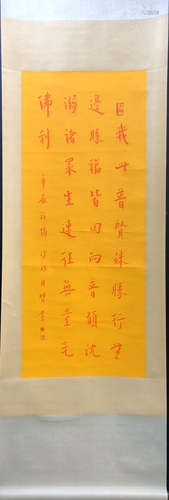 我此普賢殊勝行無
邊勝福皆回向普願沈
溺諸眾生速往無量光
佛刹